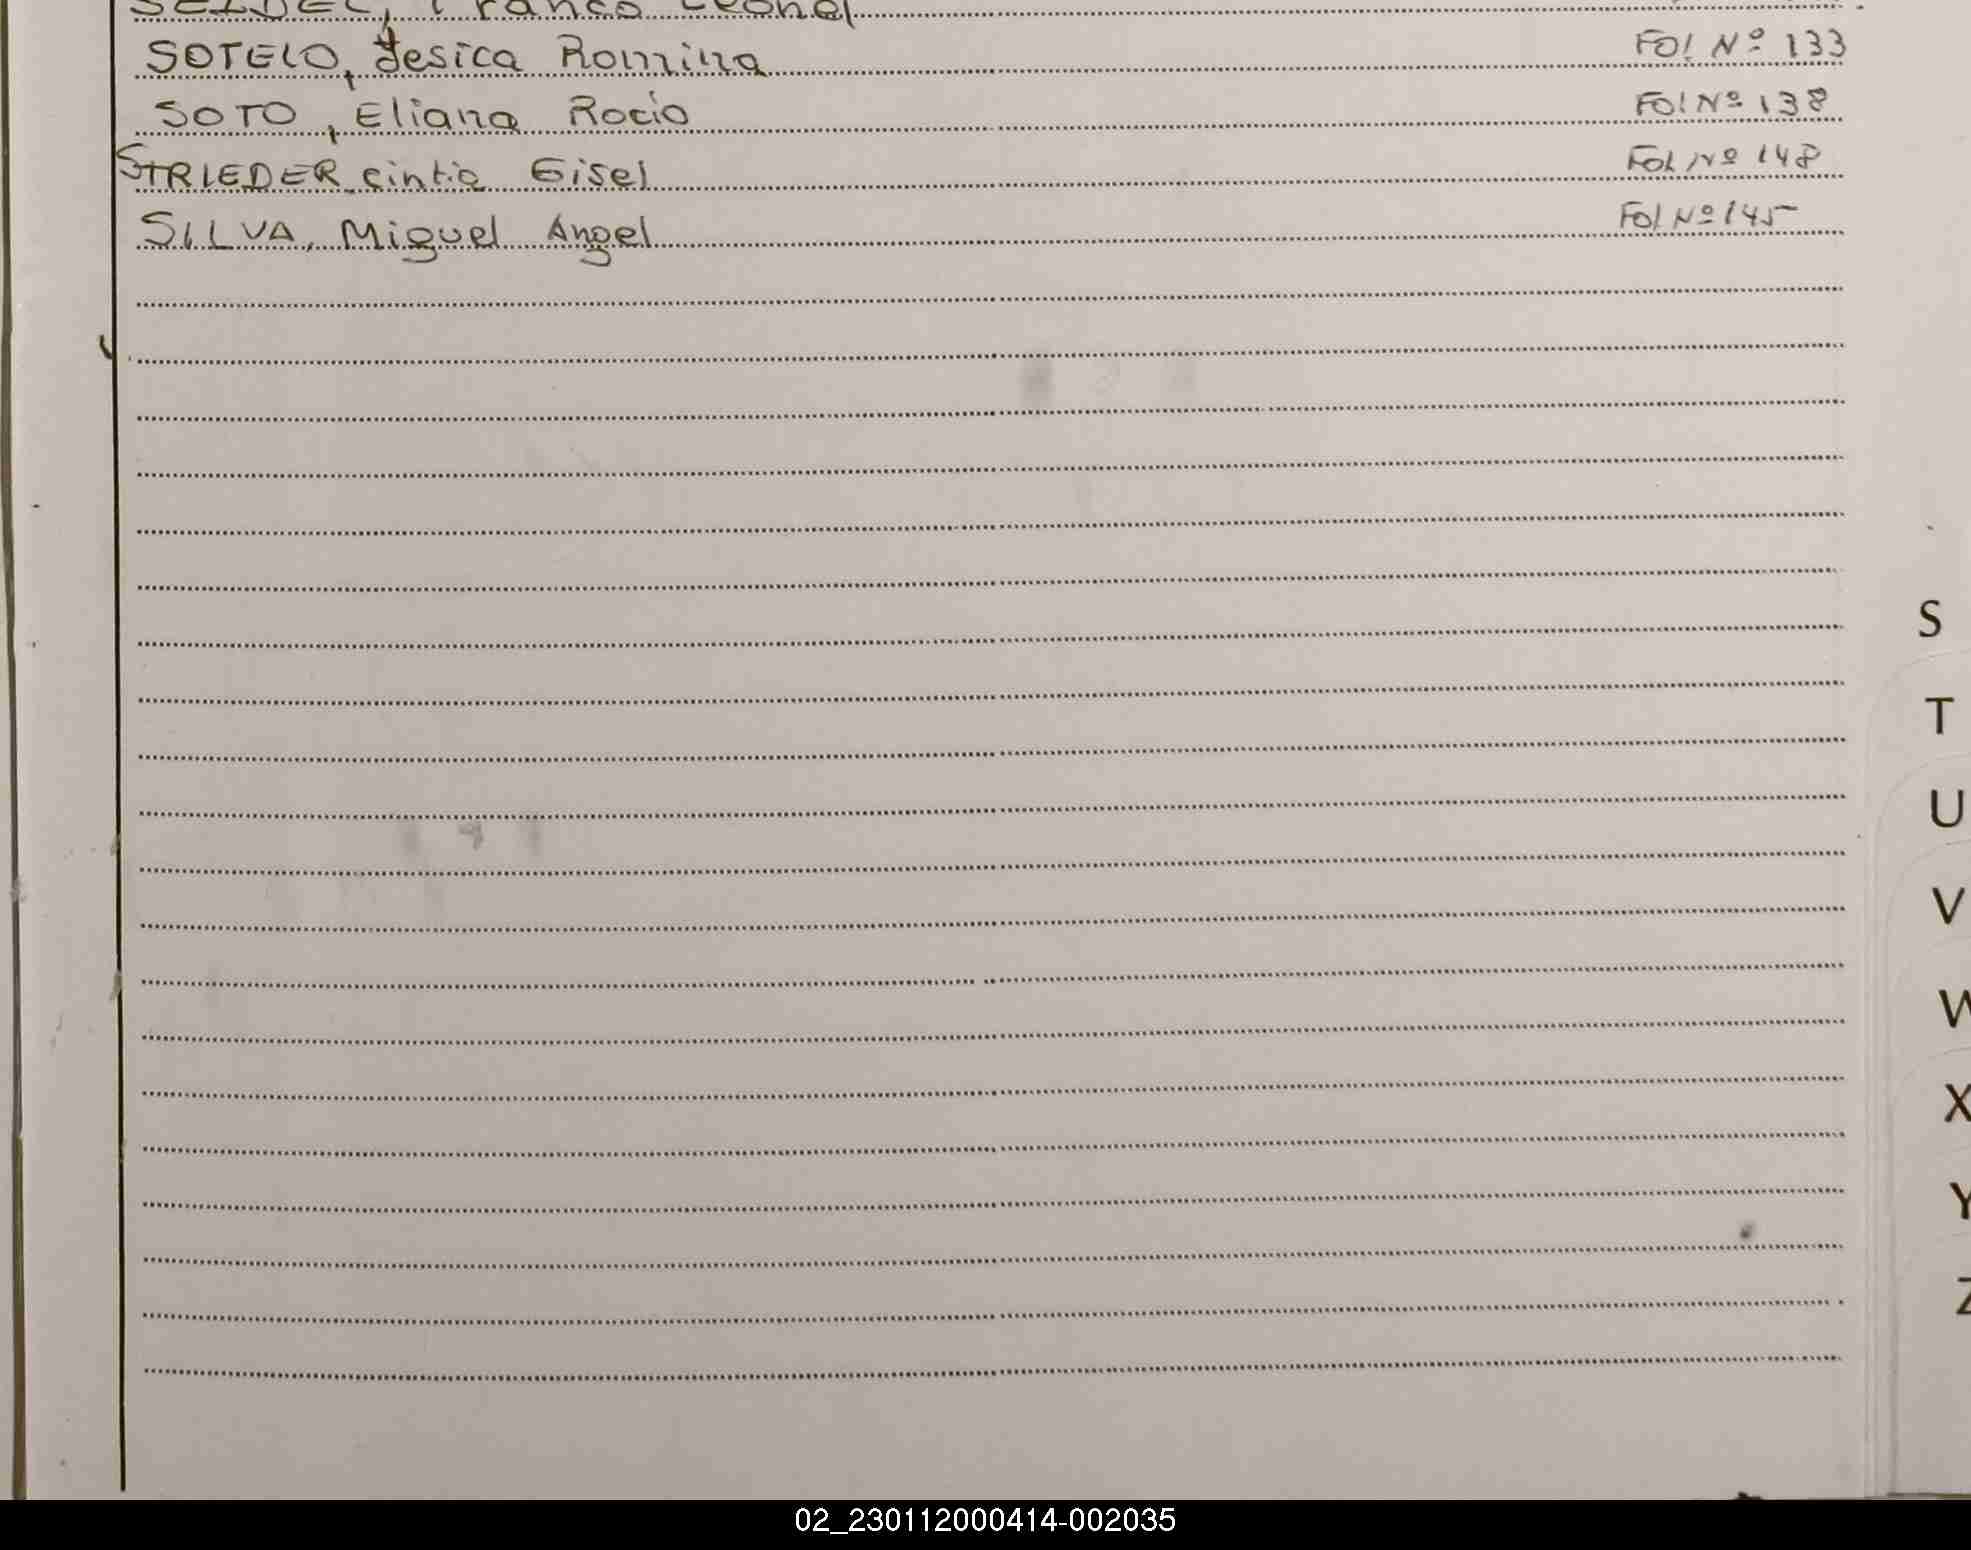 SEIDEL, Franco Leonel
SOTELO, Jesica Romina Fol Nº 133
SOTO, Eliana Rocio Fol Nº 138
STRIEDER cintia Gisel Fol Nº 148
SILVA, Miguel Angel Fol Nº 145
S
T
U
V
W
X
Y
Z
02_230112000414-002035